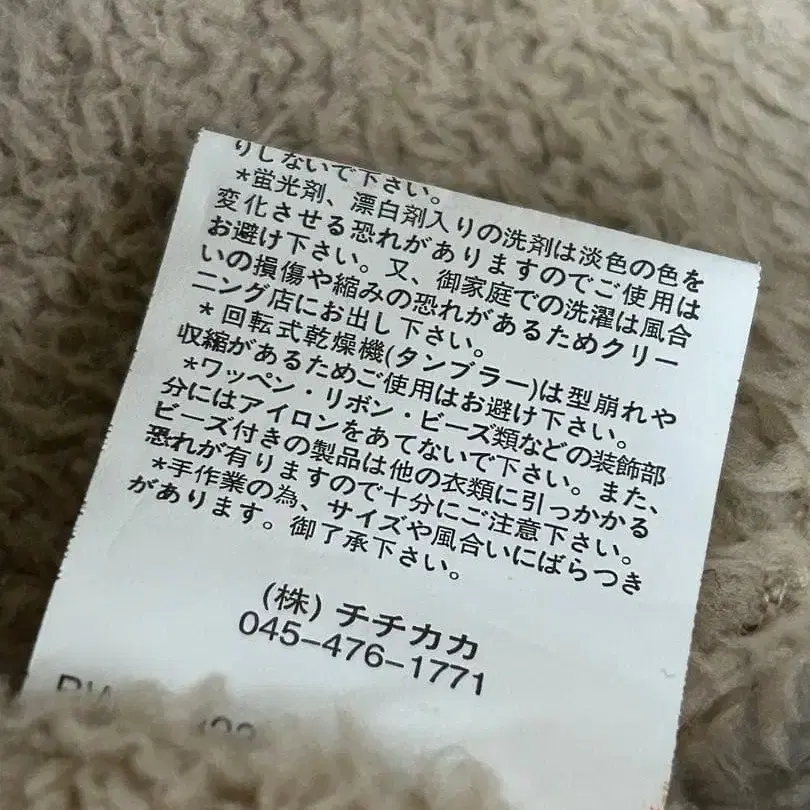 りしないで下さい。
*蛍光剤、漂白剤入りの洗剤は淡色の色を
変化させる恐れがありますのでご使用は
お避け下さい。又、御家庭での洗濯は風合
いの損傷や縮みの恐れがあるためクリー
ニング店にお出し下さい。
*回転式乾燥機(タンブラー)は型崩れや
収縮があるためご使用はお避け下さい。
*ワッペン・リボン・ビーズ類などの装飾部
分にはアイロンをあてないで下さい。また、
ビーズ付きの製品は他の衣類に引っかかる
恐れが有りますので十分にご注意下さい。
*手作業の為、サイズや風合いにばらつき
があります。御了承下さい。
(株)チチカカ
045-476-1771